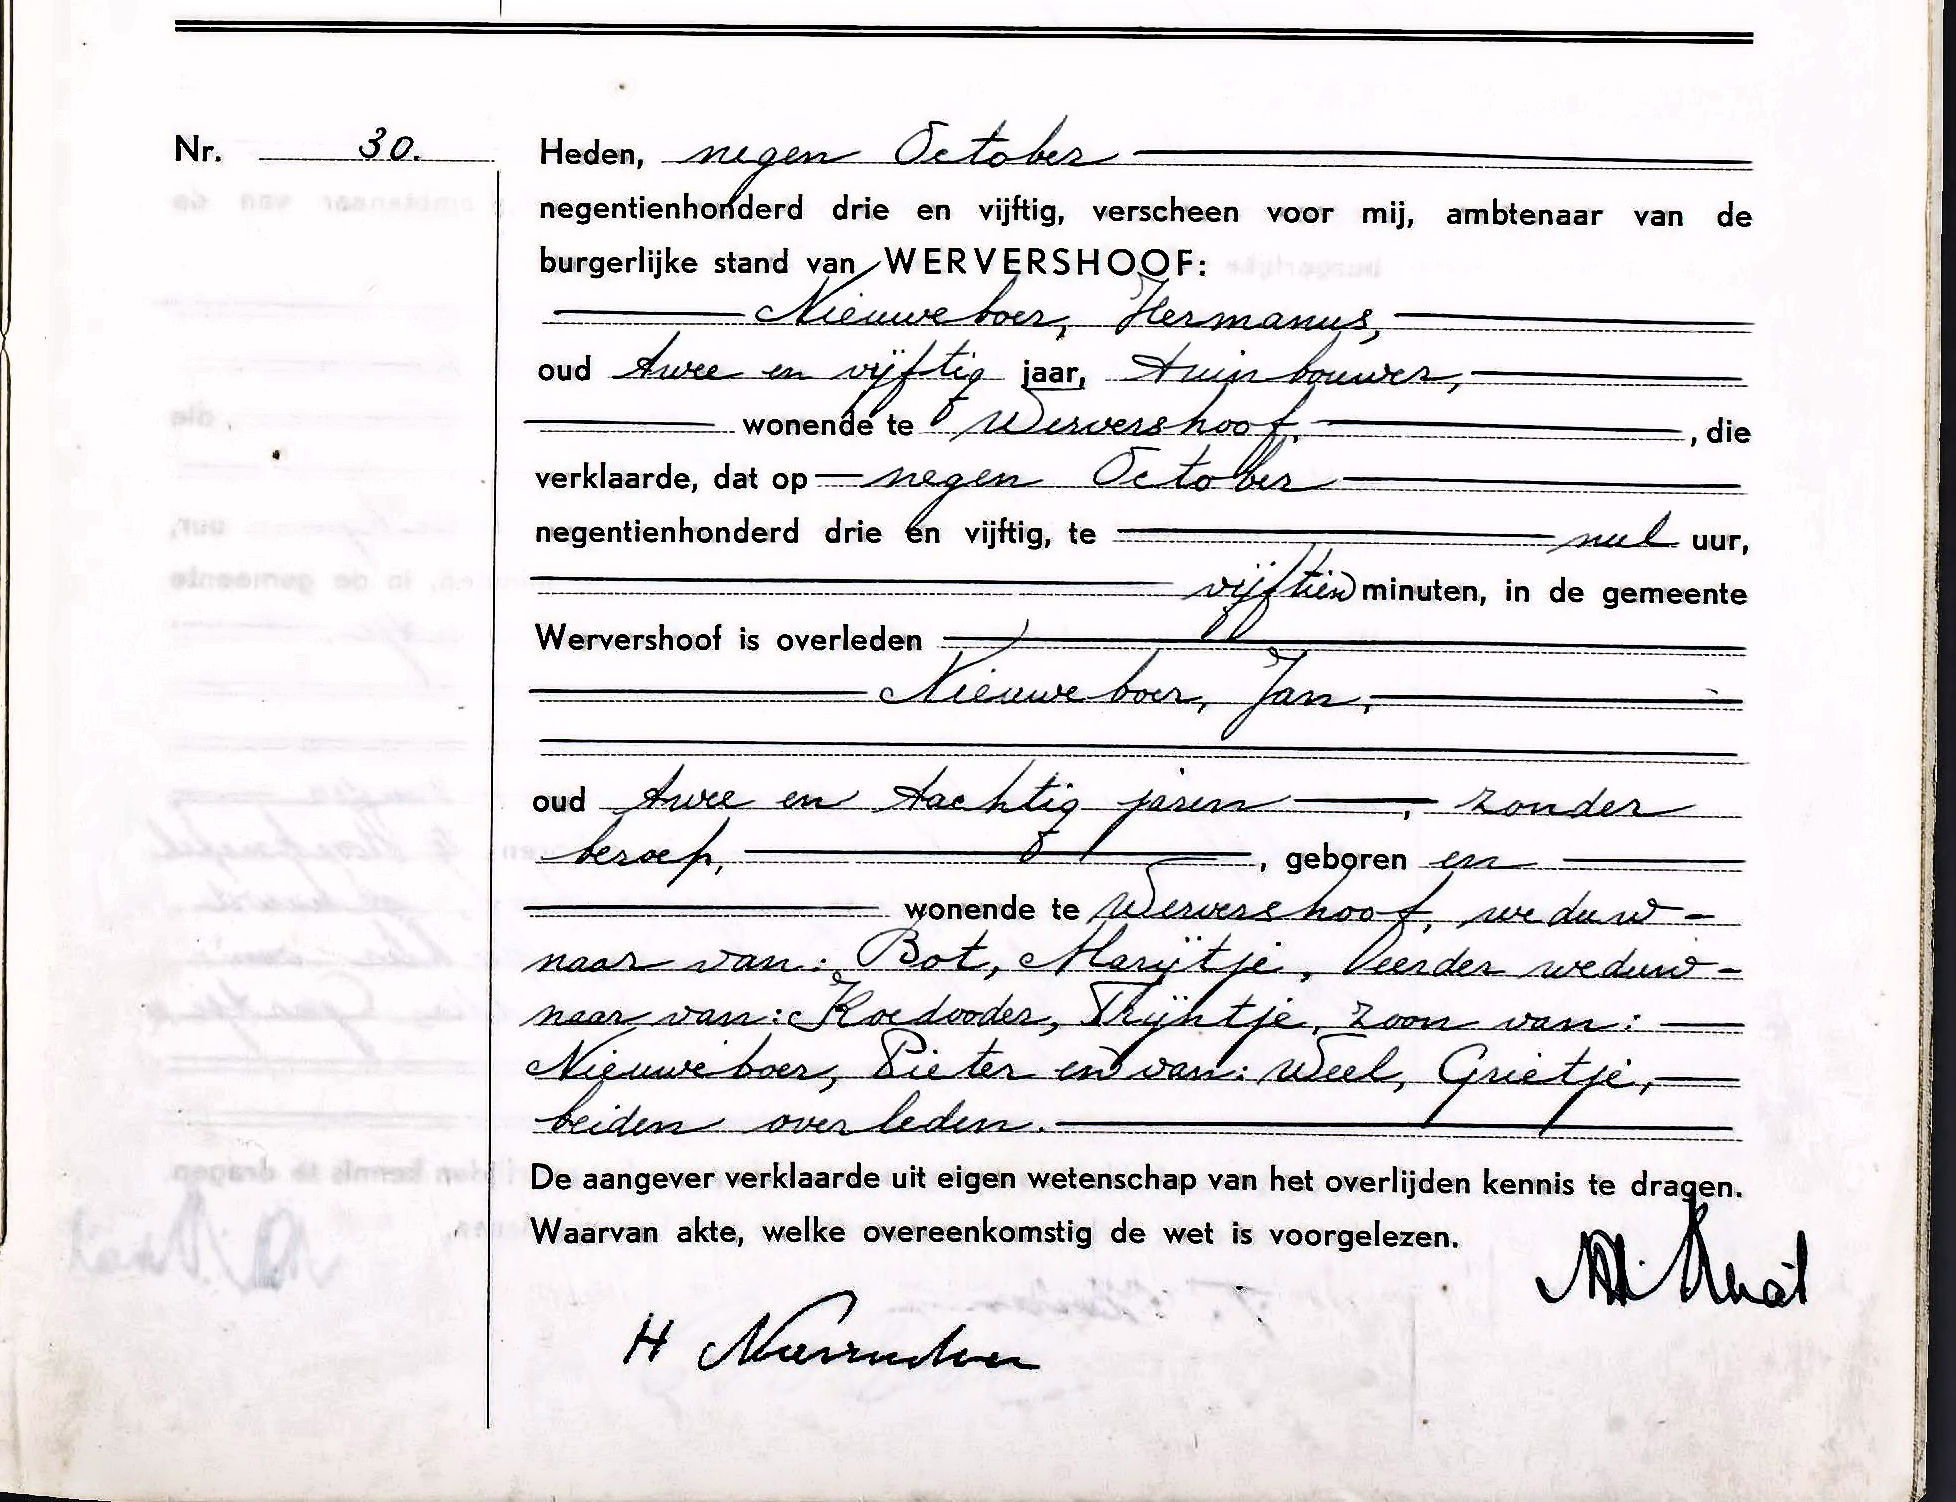 Nr. 30.
Heden, negen October
negentienhonderd drie en vijftig, verscheen voor mij, ambtenaar van de
burgerlijke stand van WERVERSHOOF:
Nieuweboer, Hermanus,
oud twee en vijftig jaar, tuinbouwer,
wonende te Wervershoof, die
verklaarde, dat op negen October
negentienhonderd drie en vijftig, te nul uur,
vijftien minuten, in de gemeente
Wervershoof is overleden
Nieuweboer, Jan,
oud twee en tachtig jaren, zonder
beroep, , geboren en
wonende te Wervershoof, weduw-
naar van: Bot, Marijtje, eerder weduw-
naar van: Koedooder, Trijntje, zoon van:
Nieuweboer, Pieter en van: Weel, Grietje,
beiden overleden.
De aangever verklaarde uit eigen wetenschap van het overlijden kennis te dragen.
Waarvan akte, welke overeenkomstig de wet is voorgelezen.
H Nieuweboer